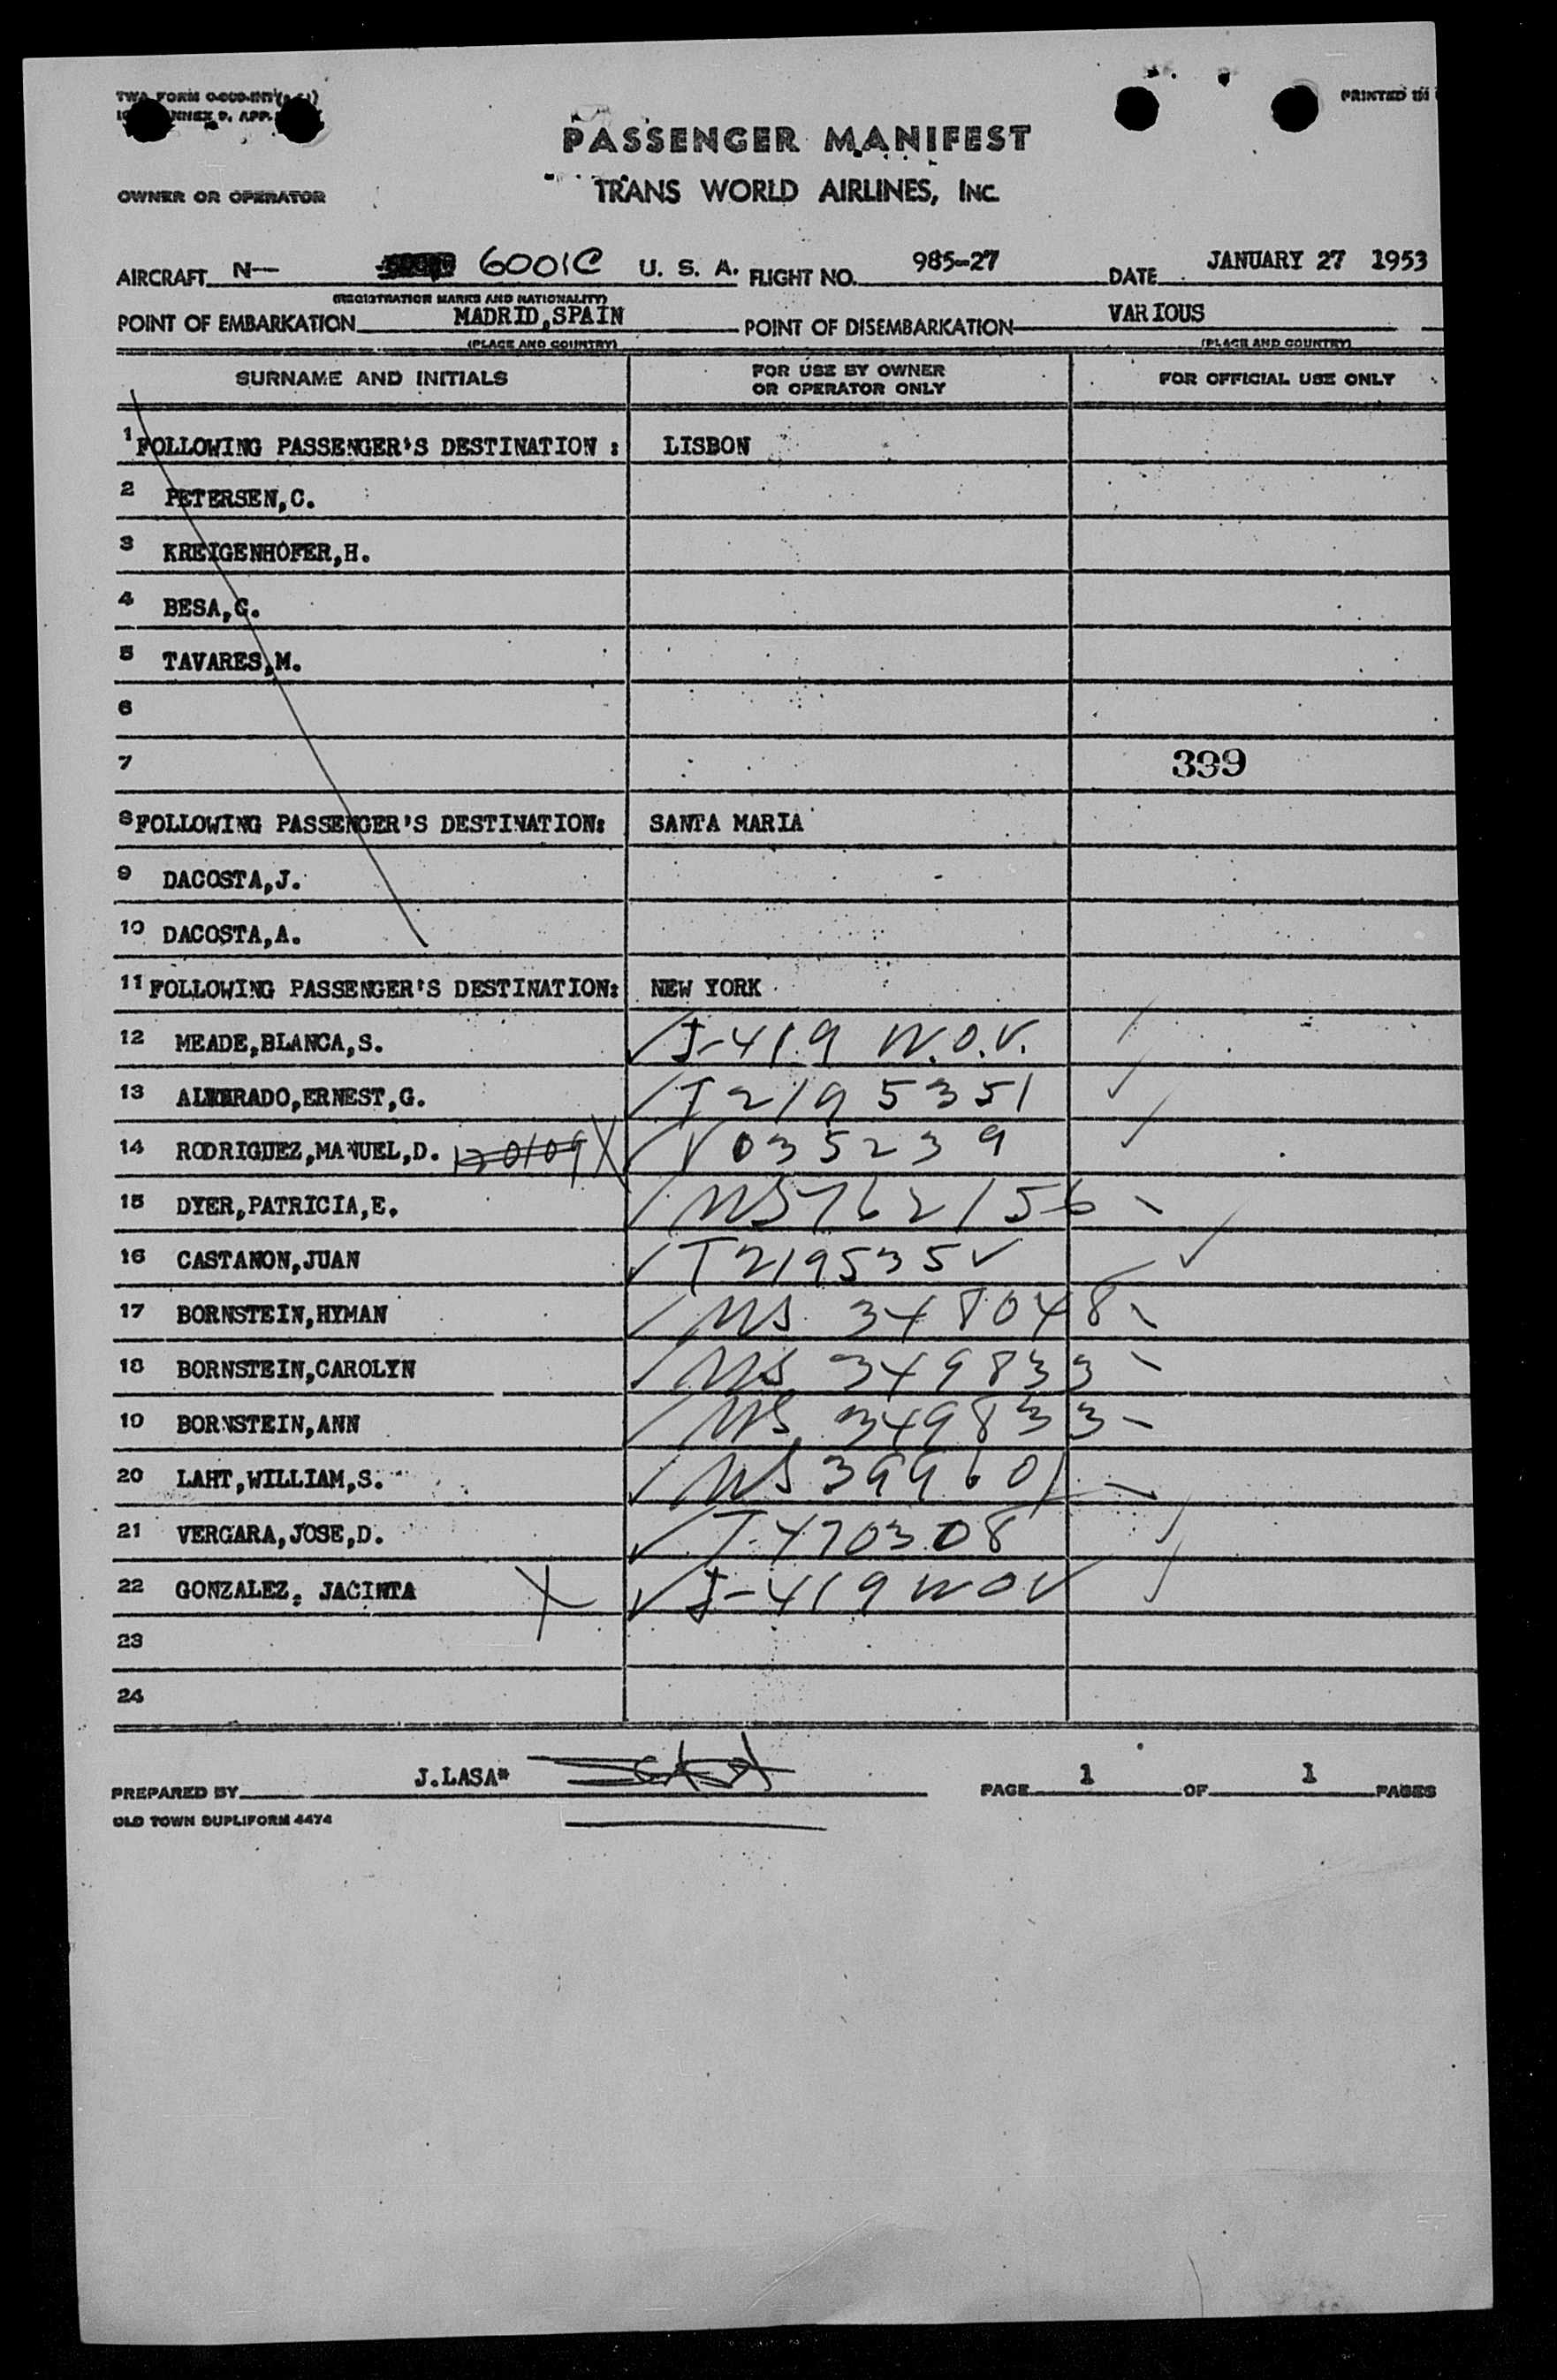 TWA FORM
ANNEX 9, APP.
PRINTED IN
PASSENGER MANIFEST
OWNER OR OPERATOR
TRANS WORLD AIRLINES, INC.
AIRCRAFT N— 6001C U. S. A. FLIGHT NO. 985-27 DATE JANUARY 27 1953
(REGISTRATION MARKS AND NATIONALITY)
POINT OF EMBARKATION MADRID,SPAIN POINT OF DISEMBARKATION VARIOUS
(PLACE AND COUNTRY) (PLACE AND COUNTRY)
SURNAME AND INITIALS FOR USE BY OWNER OR OPERATOR ONLY FOR OFFICIAL USE ONLY
1 FOLLOWING PASSENGER'S DESTINATION : LISBON
2 PETERSEN,C.
3 KREIGENHOFER,H.
4 BESA,G.
5 TAVARES,M.
6
7 399
8 FOLLOWING PASSENGER'S DESTINATION: SANTA MARIA
9 DACOSTA,J.
10 DACOSTA,A.
11 FOLLOWING PASSENGER'S DESTINATION: NEW YORK
12 MEADE,BLANCA,S. ✓ I-419 W.O.V.
13 ERNEST,G. T2195351 ✓
14 RODRIGUEZ,MANUEL,D. X V035239 ✓
15 DYER,PATRICIA,E. NS762156
16 CASTANON,JUAN ✓ T219535 ✓
17 BORNSTEIN,HYMAN NS 348048
18 BORNSTEIN,CAROLYN NS 349833
19 BORNSTEIN,ANN NS 349833
20 LAHT,WILLIAM,S. NS 399601
21 VERGARA,JOSE,D. ✓ T-470308 ✓
22 GONZALEZ, JACINTA X ✓ I-419 WOV ✓
23
24
PREPARED BY J.LASA* PAGE 1 OF 1 PAGES
OLD TOWN DUPLIFORM 4474